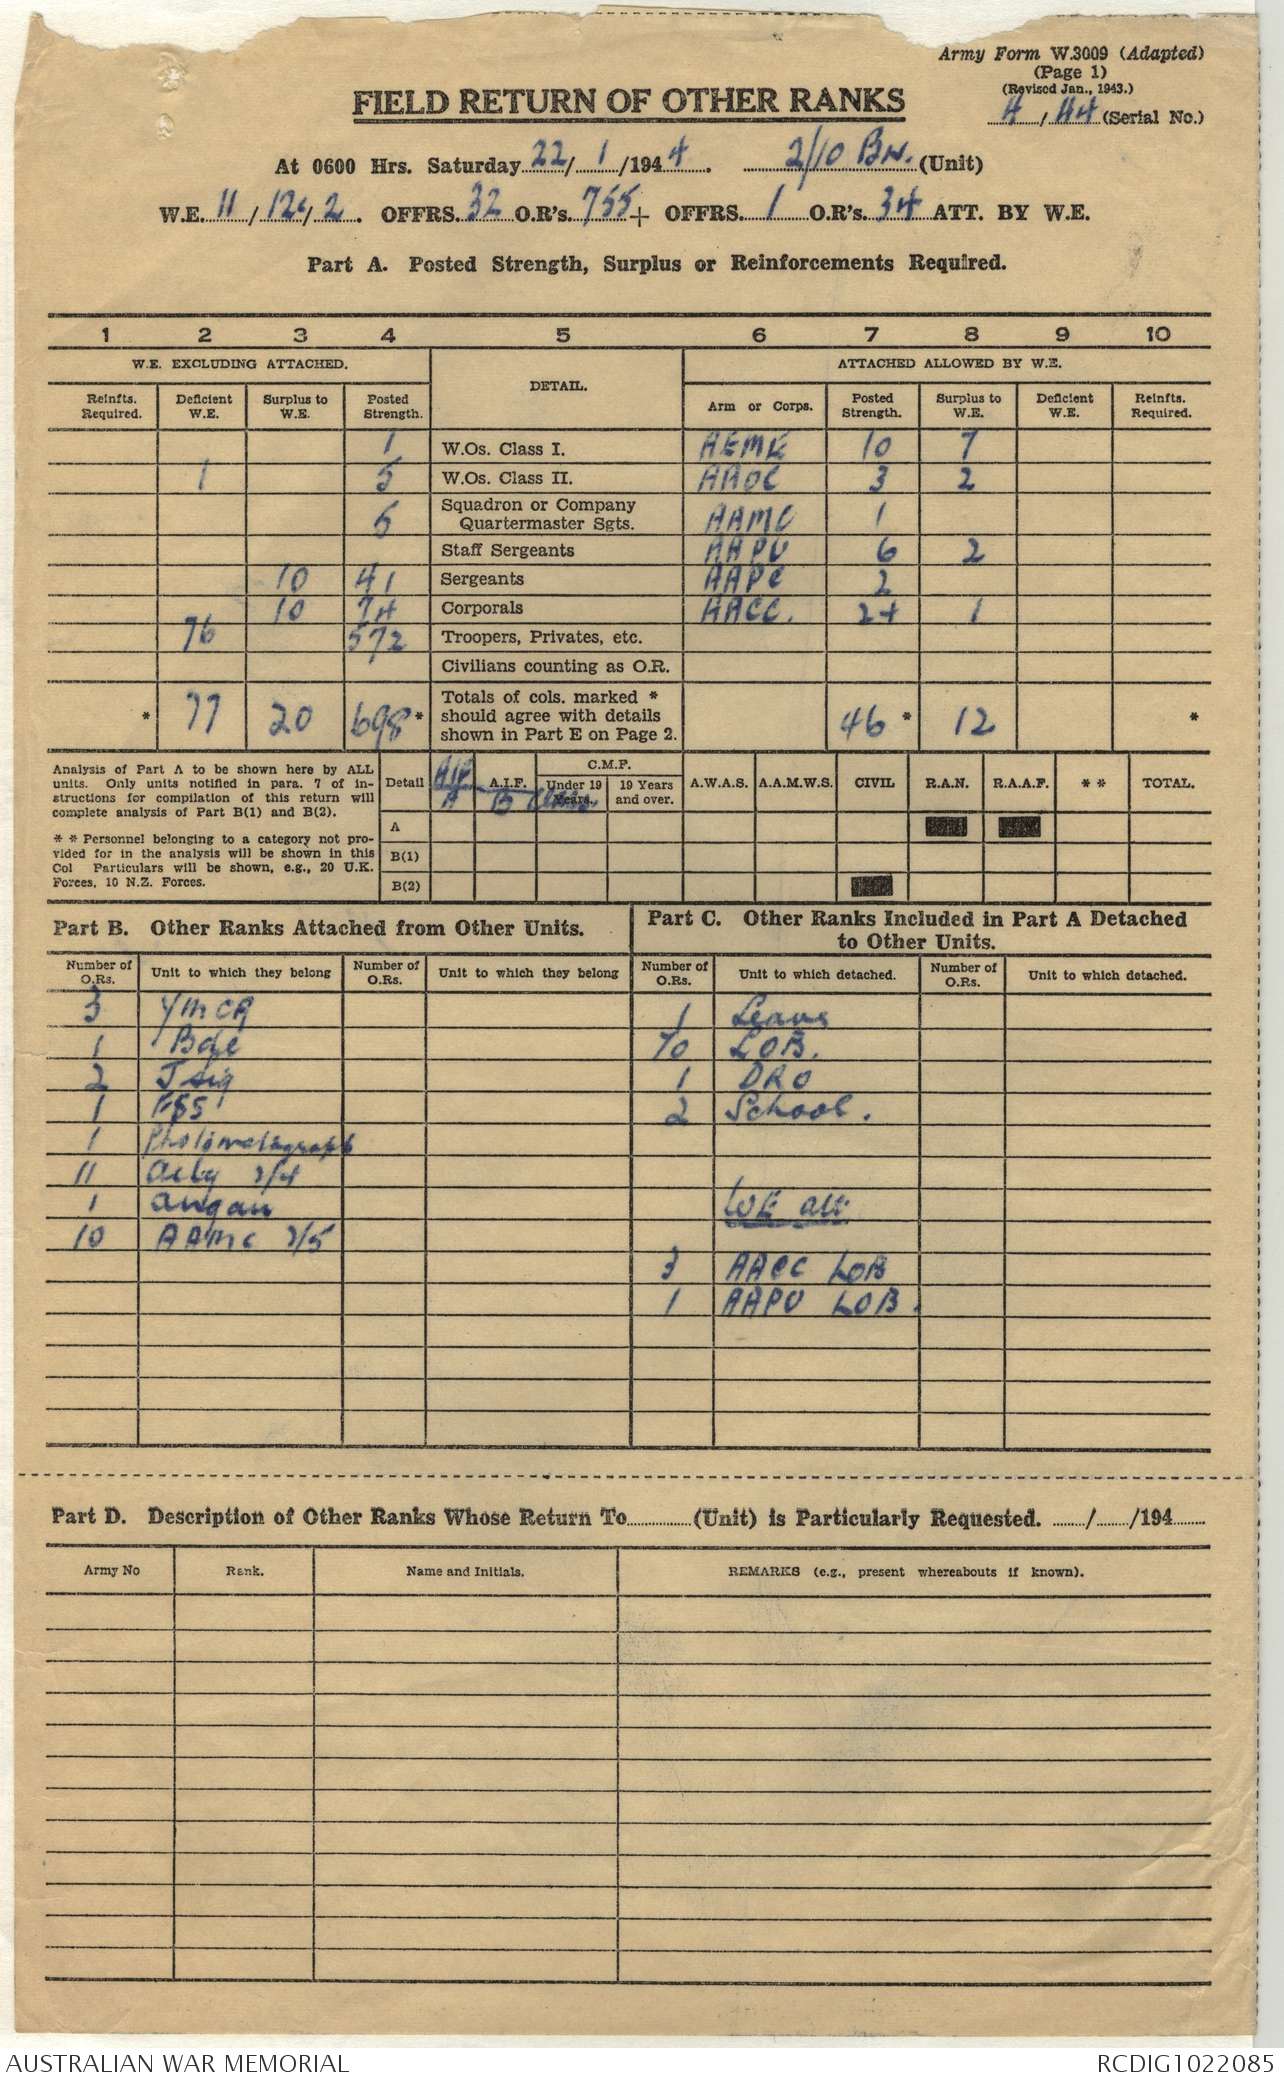 Army Form W.3009 (Adapted)
(Page 1)
(Revised Jan., 1943.)
4/44 (Serial No.)
FIELD RETURN OF OTHER RANKS
At 0600 Hrs. Saturday 22/1/1944. 2/10 Bn. (Unit)
W.E. 11/12c/2. OFFRS. 32 O.R's. 755 + OFFRS. 1 O.R's. 34 ATT. BY W.E.
Part A. Posted Strength, Surplus or Reinforcements Required.
1 2 3 4 5 6 7 8 9 10
W.E. EXCLUDING ATTACHED. DETAIL. ATTACHED ALLOWED BY W.E.
Reinfts. Required. Deficient W.E. Surplus to W.E. Posted Strength. Arm or Corps. Posted Strength. Surplus to W.E. Deficient W.E. Reinfts. Required.
1 W.Os. Class I. AEME 10 7
1 5 W.Os. Class II. AAOC 3 2
5 Squadron or Company Quartermaster Sgts. AAMC 1
Staff Sergeants AAPU 6 2
10 41 Sergeants AAPC 2
10 74 Corporals AACC. 24 1
76 572 Troopers, Privates, etc.
Civilians counting as O.R.
* 77 20 698 * Totals of cols. marked * should agree with details shown in Part E on Page 2. 46 * 12 *
Analysis of Part A to be shown here by ALL
units. Only units notified in para. 7 of in-
structions for compilation of this return will
complete analysis of Part B(1) and B(2).
* * Personnel belonging to a category not pro-
vided for in the analysis will be shown in this
Col Particulars will be shown, e.g., 20 U.K.
Forces, 10 N.Z. Forces.
Detail A.I.F. C.M.F. Under 19 Years. 19 Years and over. A.W.A.S. A.A.M.W.S. CIVIL R.A.N. R.A.A.F. * * TOTAL.
A B Class
A
B(1)
B(2)
Part B. Other Ranks Attached from Other Units.
Number of O.Rs. Unit to which they belong Number of O.Rs. Unit to which they belong
3 YMCA
1 Bde
2 J sig
1 FSS
1
11 2/4
1 Angau
10 AAMC 2/5
Part C. Other Ranks Included in Part A Detached
to Other Units.
Number of O.Rs. Unit to which detached. Number of O.Rs. Unit to which detached.
1 Leave
70 LOB.
1 DRO
2 School.
WE att
3 AACC LOB
1 AAPU LOB.
Part D. Description of Other Ranks Whose Return To............(Unit) is Particularly Requested. ....../....../194......
Army No Rank. Name and Initials. REMARKS (e.g., present whereabouts if known).
AUSTRALIAN WAR MEMORIAL RCDIG1022085